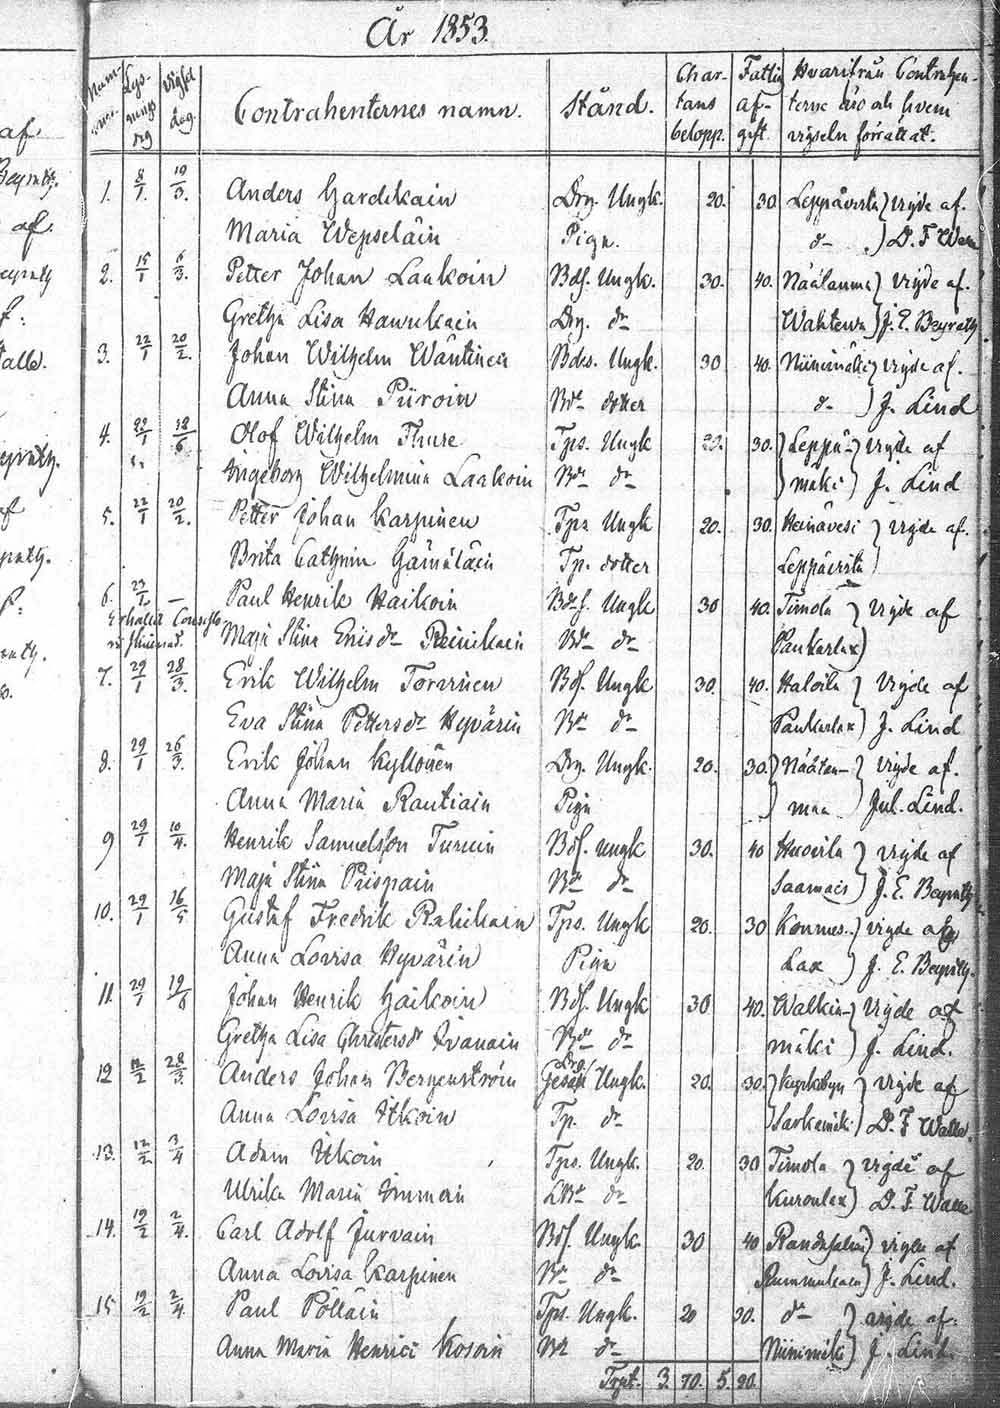 År 1853.
Num- Lys- Vigsel
mer. nings dag.
dag
Contrahenternes namn. Stånd.
Char- Fattig Hvarifrån Contrahen-
tans af- terne äro och hvem
belopp. gift vigseln förrättat.
1. 8/1 19/3. Anders Hardikain Drg. Ungk. 20. 30 Leppävirta vigde af.
Maria Wepseläin Piga. do D. F. Walle
2. 15/1 6/3. Petter Johan Laakoin Bds. Ungk. 30. 40. Näälänmä vigde af.
Gretha Lisa Hawukain Drg. dr Wahtewa J. E. Beyrath
3. 22/1 20/2. Johan Wilhelm Wäntinen Bdes. Ungk. 30 40. Niinimäki vigde af.
Anna Stina Piiroin Bdr dotter do J. Lind
4. 22/1 18/6 Olof Wilhelm Thure Tps. Ungk 20. 30. Leppä- vigde af
Ingeborg Wilhelmina Laakoin Br dr mäki J. Lind
5. 22/1 20/2. Petter Johan Karpinen Tps Ungk 20. 30. Heinävesi vigde af.
Brita Cathrin Hämäläin Tp. dotter Leppävirta
6. 23/1. — Paul Henrik Haikoin Bds. Ungk 30 40. Timola vigde af
Maja Stina Eriksdr Reinikain Br dr Paukarlax
7. 29/1 28/3. Erik Wilhelm Torvinen Bds. Ungk 30. 40. Haloila vigde af
Eva Stina Pettersdr Hyvärin Br dr Paukarlax J. Lind
8. 29/1 26/3. Erik Johan Kyllönen Drg. Ungk. 20. 30. Näätän- vigde af.
Anna Maria Rautiain Piga maa Jul. Lind.
9 29/1 10/4. Henrik Samuelsson Turuin Bds. Ungk 30. 40 Huovila vigde af
Maja Stina Pispain Br dr Saamais J. E. Beyrath
10. 29/1 16/5 Gustaf Fredrik Rahikain Tps. Ungk 20. 30 Konnus- vigde af
Anna Lovisa Hyvärin Piga Lax J. E. Beyrath.
11. 29/1 19/6 Johan Henrik Haikoin Bds. Ungk 30 40. Walkia- vigde af
Gretha Lisa Christersdr Ivanain Br dr mäki J. Lind.
12 12/2 28/3. Anders Johan Bergenström Gesäll Ungk. 20. 30. Kyrkobyn vigde af
Anna Lovisa Itkoin Tp. dr Sarkamäki D. F. Walle.
13. 12/2 3/4 Adam Itkoin Tps. Ungk. 20. 30 Timola vigde af
Ulrika Maria Immoin LBr dr Kurolax D. F. Walle
14. 19/2 2/4. Carl Adolf Jurvain Bds. Ungk. 30 40 Randasalmi vigde af
Anna Lovisa Karpinen Br dr Rummukain J. Lind.
15. 19/2 2/4. Paul Pölläin Tps. Ungk. 20 30. do vigde af.
Anna Maria Henrici Kosoin Br dr Niinimäk J. Lind.
Trpt. 3. 70. 5. 20.